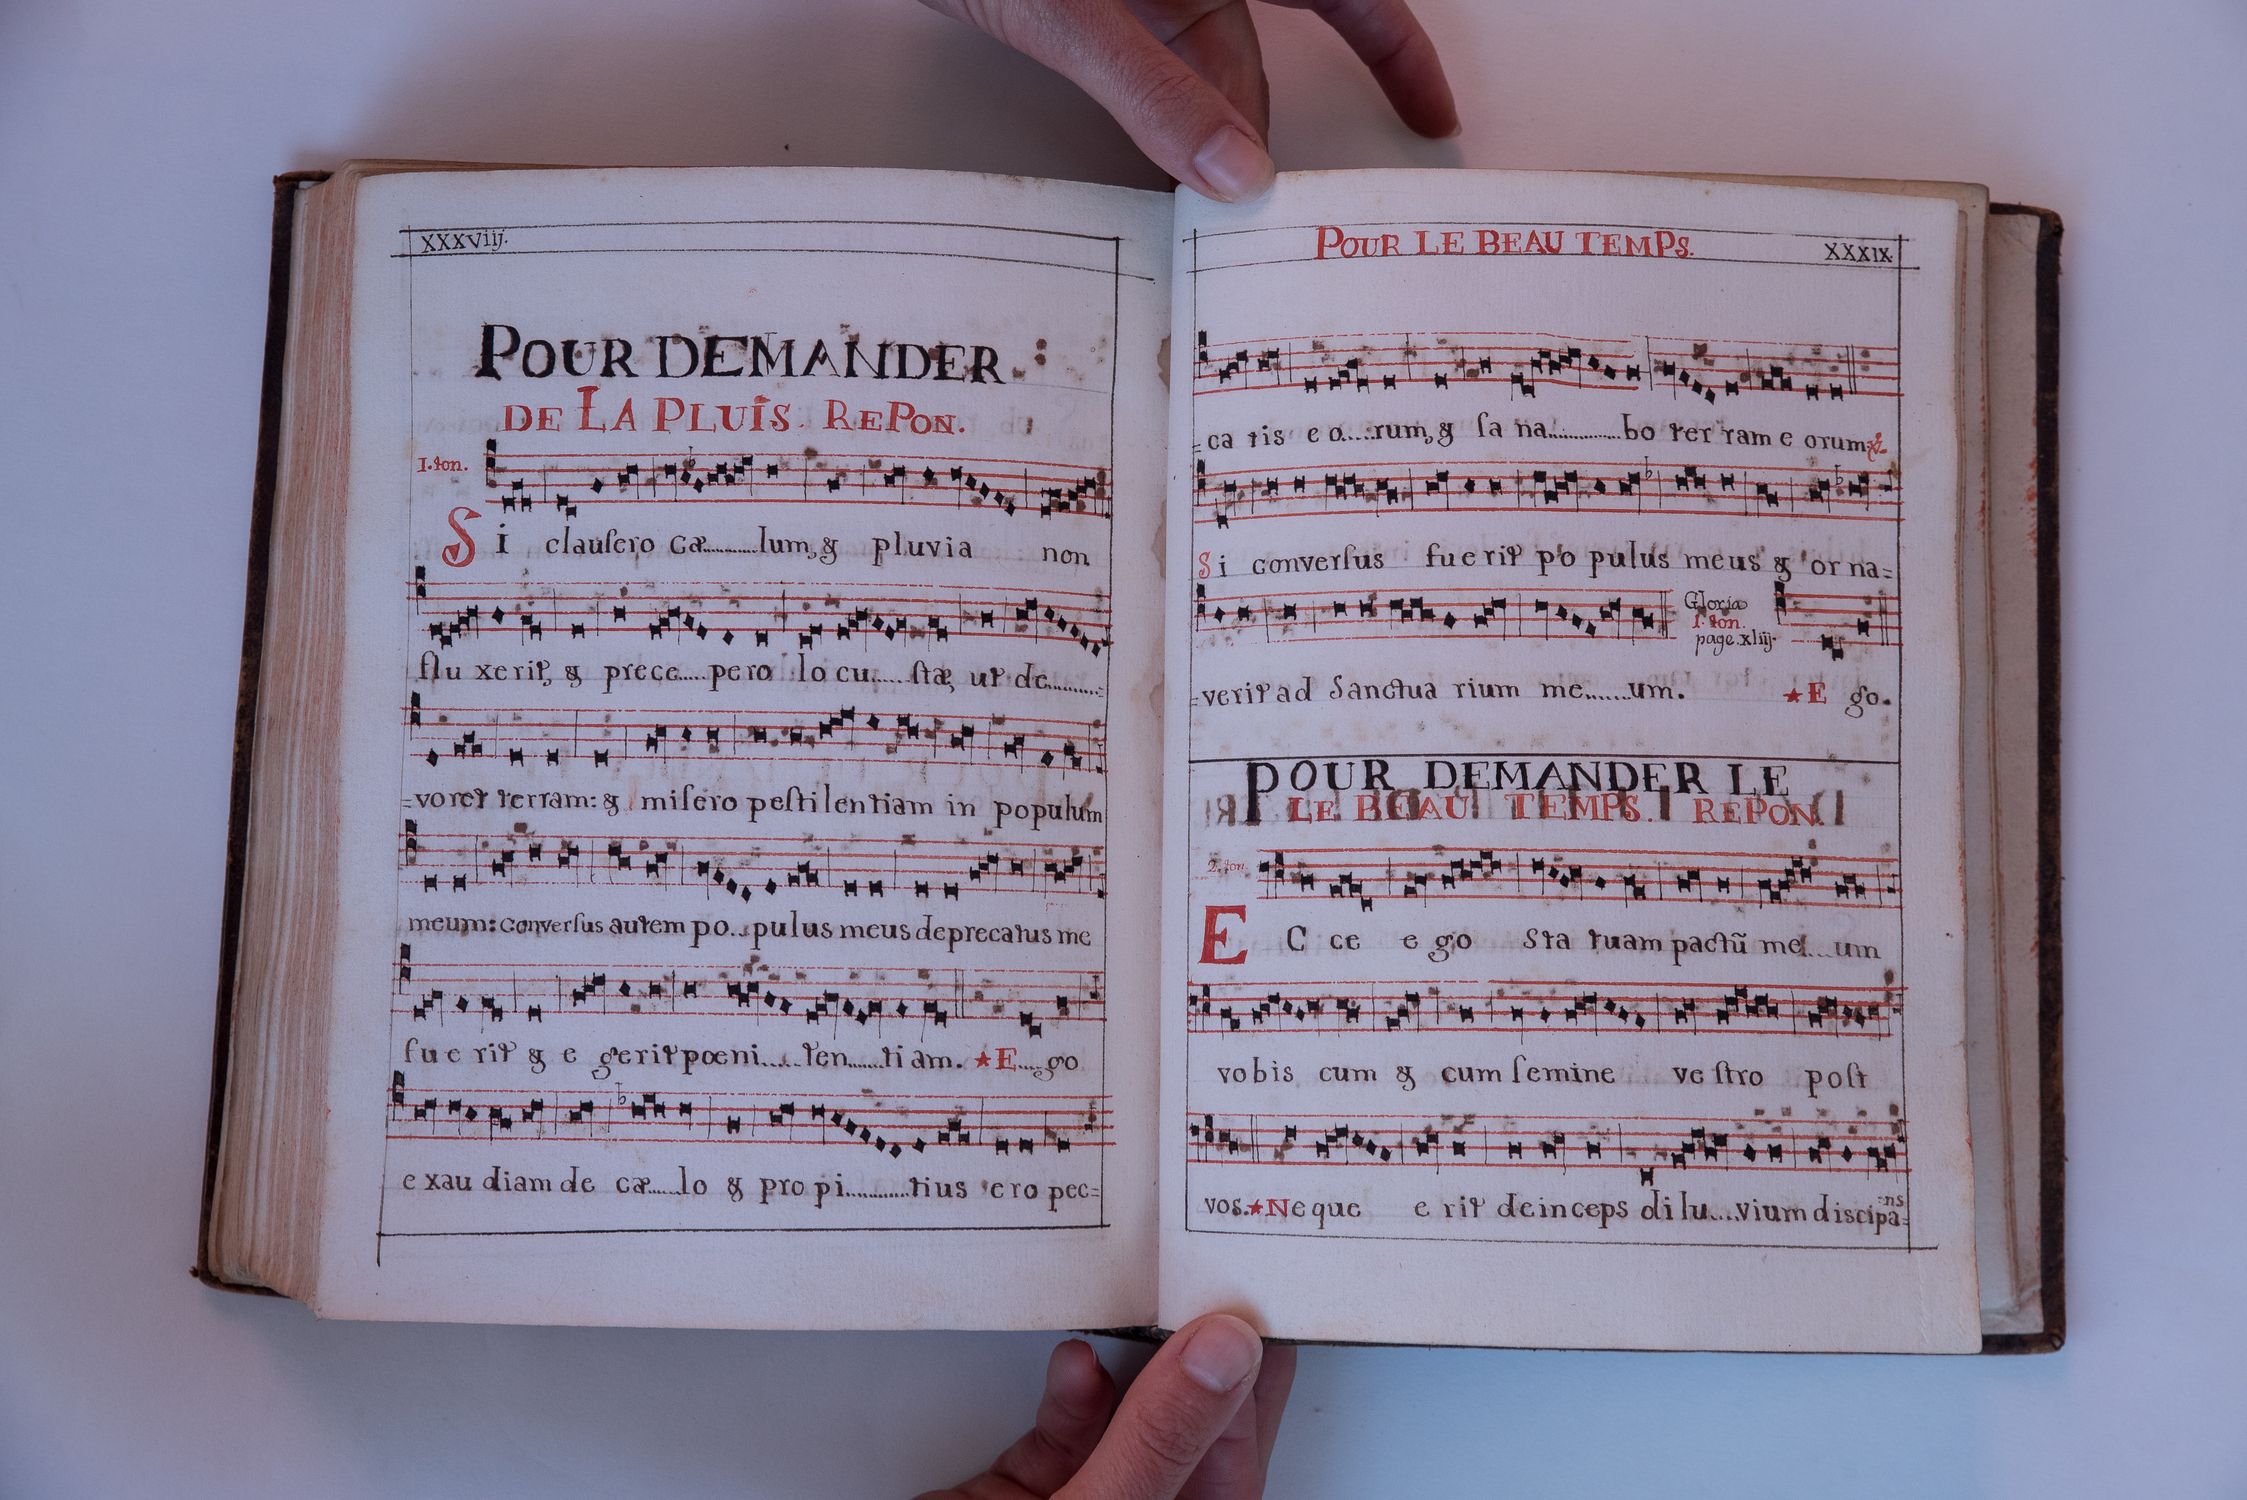 XXXViij.
POUR DEMANDER
DE LA PLUIS. REPON.
1. ton.
Si clauſero cæ..........lum, & pluvia non
flu xerit, & prece.....pero lo cu.....ſtæ, ut de..........
=voret terram: & miſero peſtilentiam in populum
meum: converſus autem po...pulus meus deprecatus me
fu e rit & e gerit pœni......ten.......ti am. ★ E....go
exau diam de cæ......lo & pro pi............tius ero pec=
POUR LE BEAU TEMPS. XXXIX.
=ca tis eo.....rum, & ſa na.............bo ter ram e orum ℣.
Si converſus fue rit po pulus meus & or na=
Gloria
1. ton.
page.xliij.
=verit ad Sanctua rium me......um. ★ E go.
POUR DEMANDER LE
LE BEAU TEMPS. REPON.
2. ton.
E C ce e go Sta tuam pactũ me....um
vobis cum & cum ſemine ve ſtro poſt
vos.★Neque e rit deinceps di lu....vium discipa=
ns